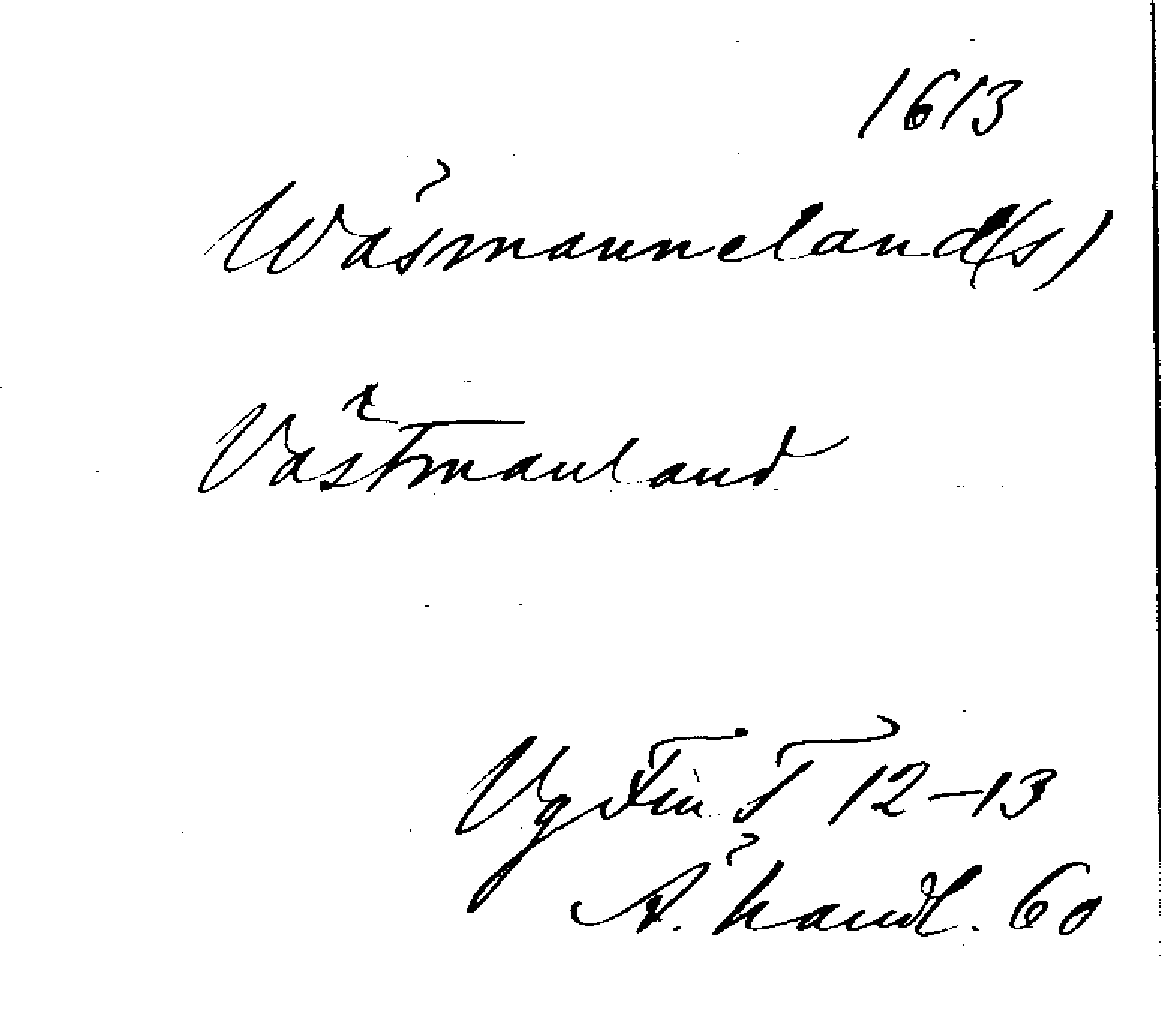 1613
Wäsmanneland(s)
Västmanland
Vg Fin T 12-13
Ä. handl. 60